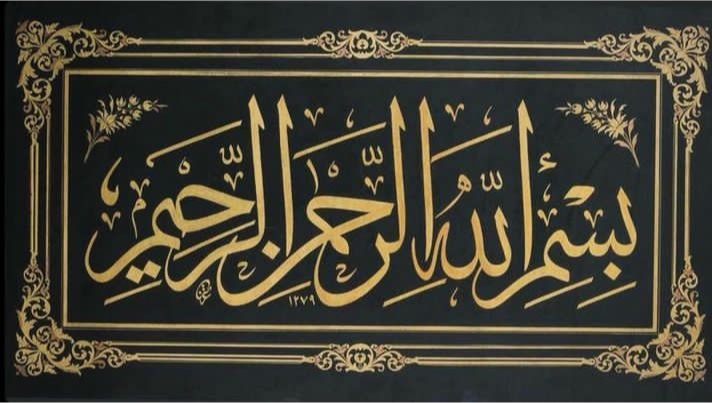 بِسْمِ اللّٰهِ الرَّحْمٰنِ الرَّحِيمِ
١٢٧٩